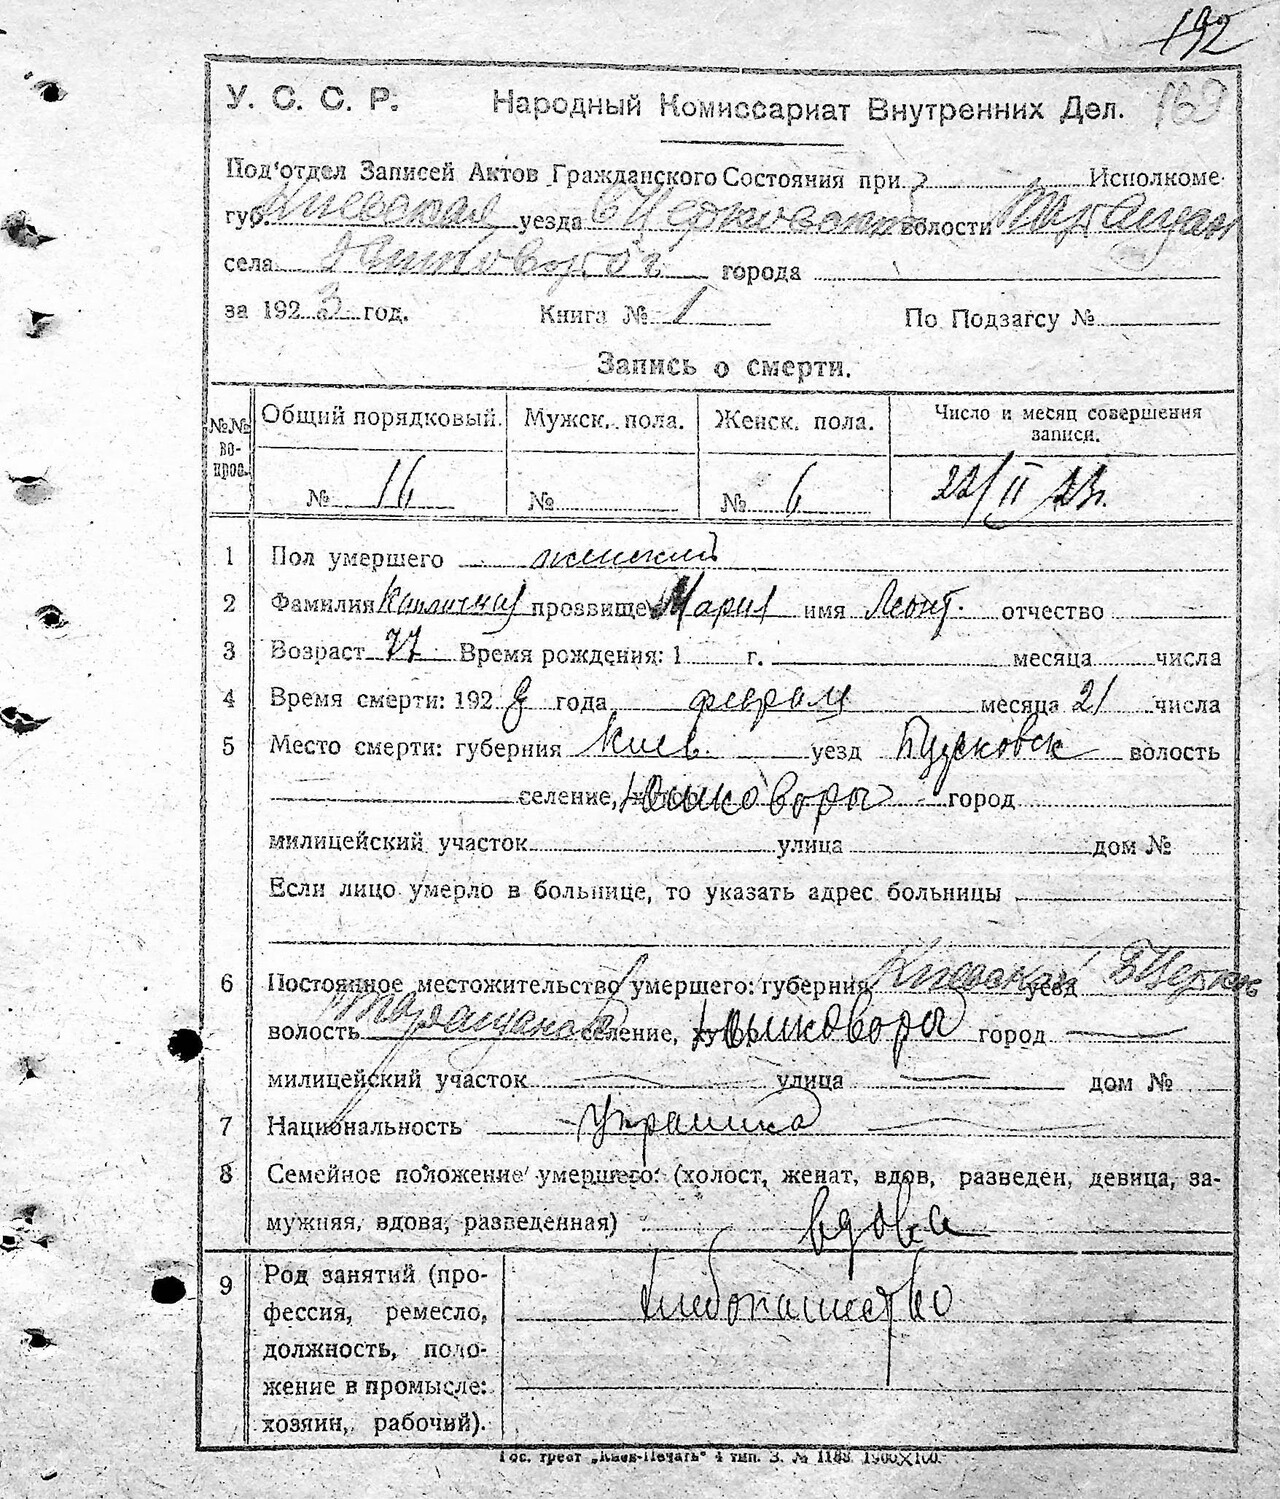 192
У. С. С. Р. Народный Комиссариат Внутренних Дел. 169
Под'отдел Записей Актов Гражданского Состояния при Исполкоме
губ. Киевская уезда Б Церковск волости Таращан
села города
за 1923 год. Книга № 1 По Подзагсу №
Запись о смерти.
№№ вопрос. Общий порядковый. Мужск. пола. Женск. пола. Число и месяц совершения записи.
№ 16 № № 6 22/II 23г.
1 Пол умершего женский
2 Фамилия прозвище Мария имя Леонт. отчество
3 Возраст 77 Время рождения: 1 г. месяца числа
4 Время смерти: 1923 года февраля месяца 21 числа
5 Место смерти: губерния Киев. уезд волость
селение, Юшков город
милицейский участок улица дом №
Если лицо умерло в больнице, то указать адрес больницы
6 Постоянное местожительство умершего: губерния Киевская уезд Б Церков
волость Таращанская селение, город
милицейский участок улица дом №
7 Национальность Украинка
8 Семейное положение умершего: (холост, женат, вдов, разведен, девица, за-
мужняя, вдова, разведенная) вдова
9 Род занятий (про-
фессия, ремесло, хлебопашество
должность, поло-
жение в промысле:
хозяин, рабочий).
Гос. трест „Киев-Печать" 4 тип. З. № 1188.